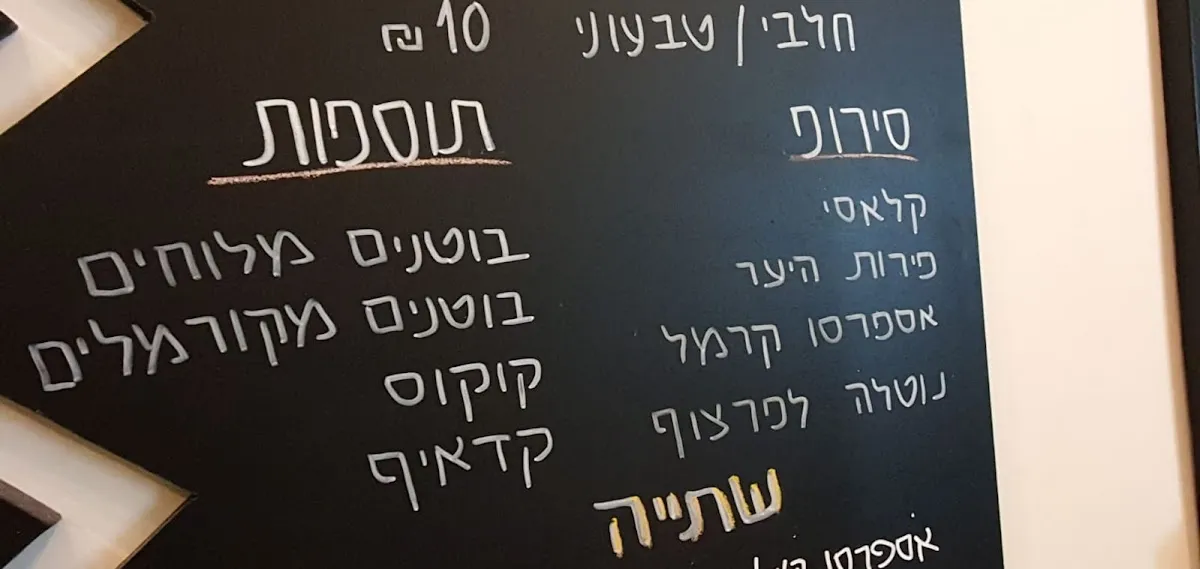 חלבי / טבעוני 10 ₪
סירופ
קלאסי
פירות היער
אספרסו קרמל
נוטלה לפרצוף
תוספות
בוטנים מלוחים
בוטנים מקורמלים
קוקוס
קדאיף
שתייה
אספרסו